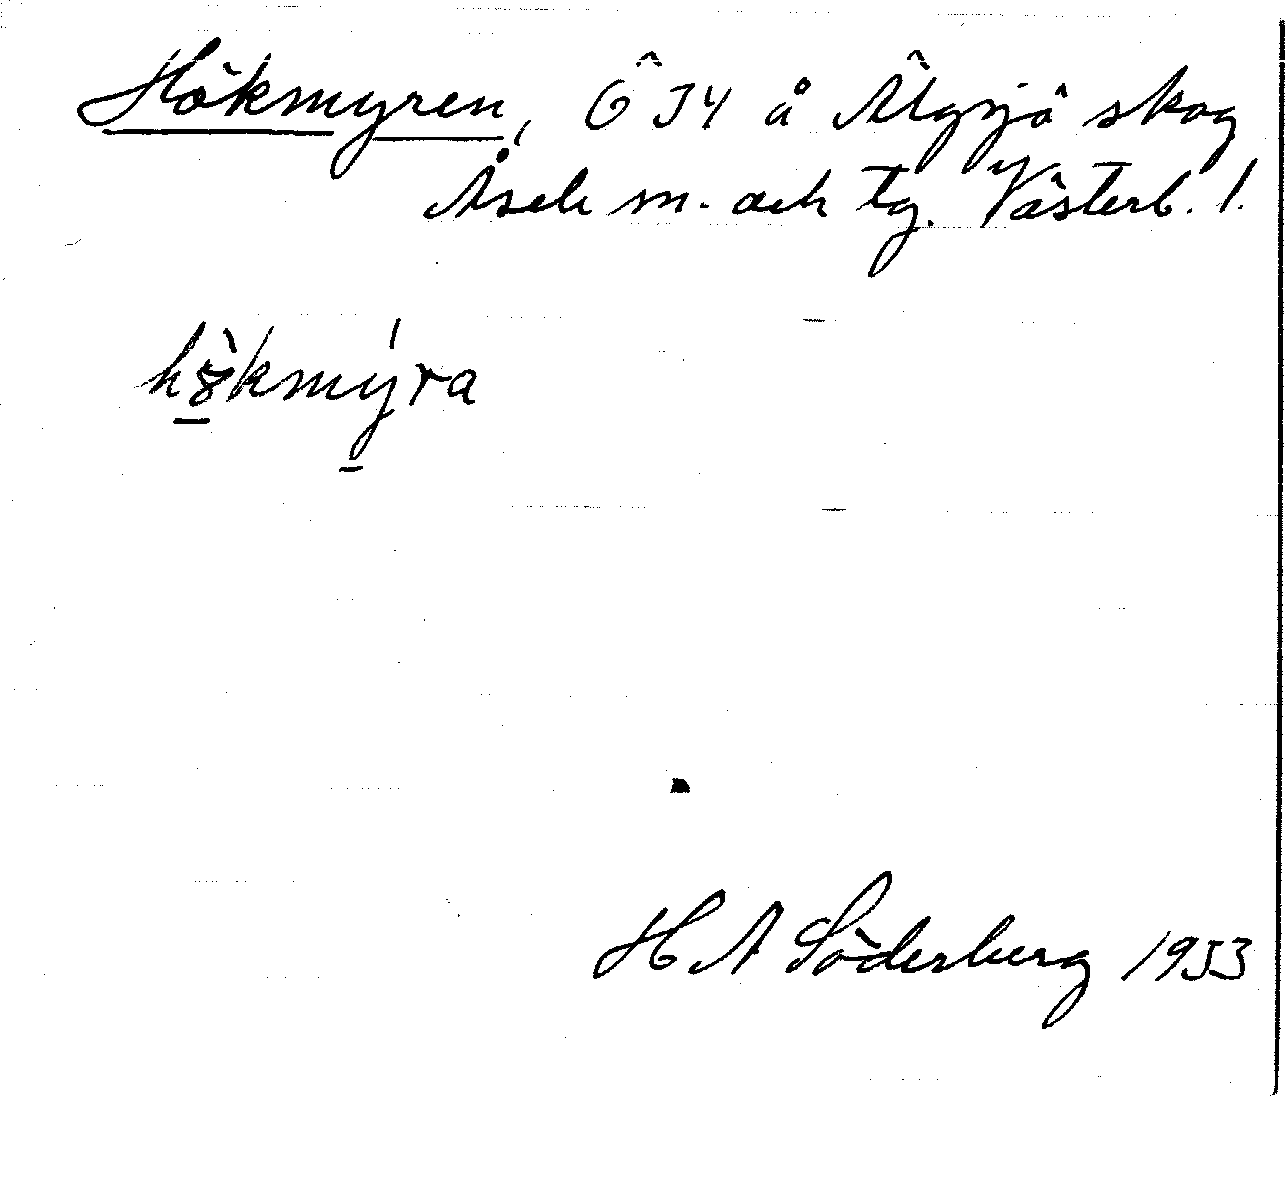 Hökmyren, Ö 54 å Älgsjö skog
Åsele sn. och tg. Västerb. l.
hökmyra
H A Söderberg 1953